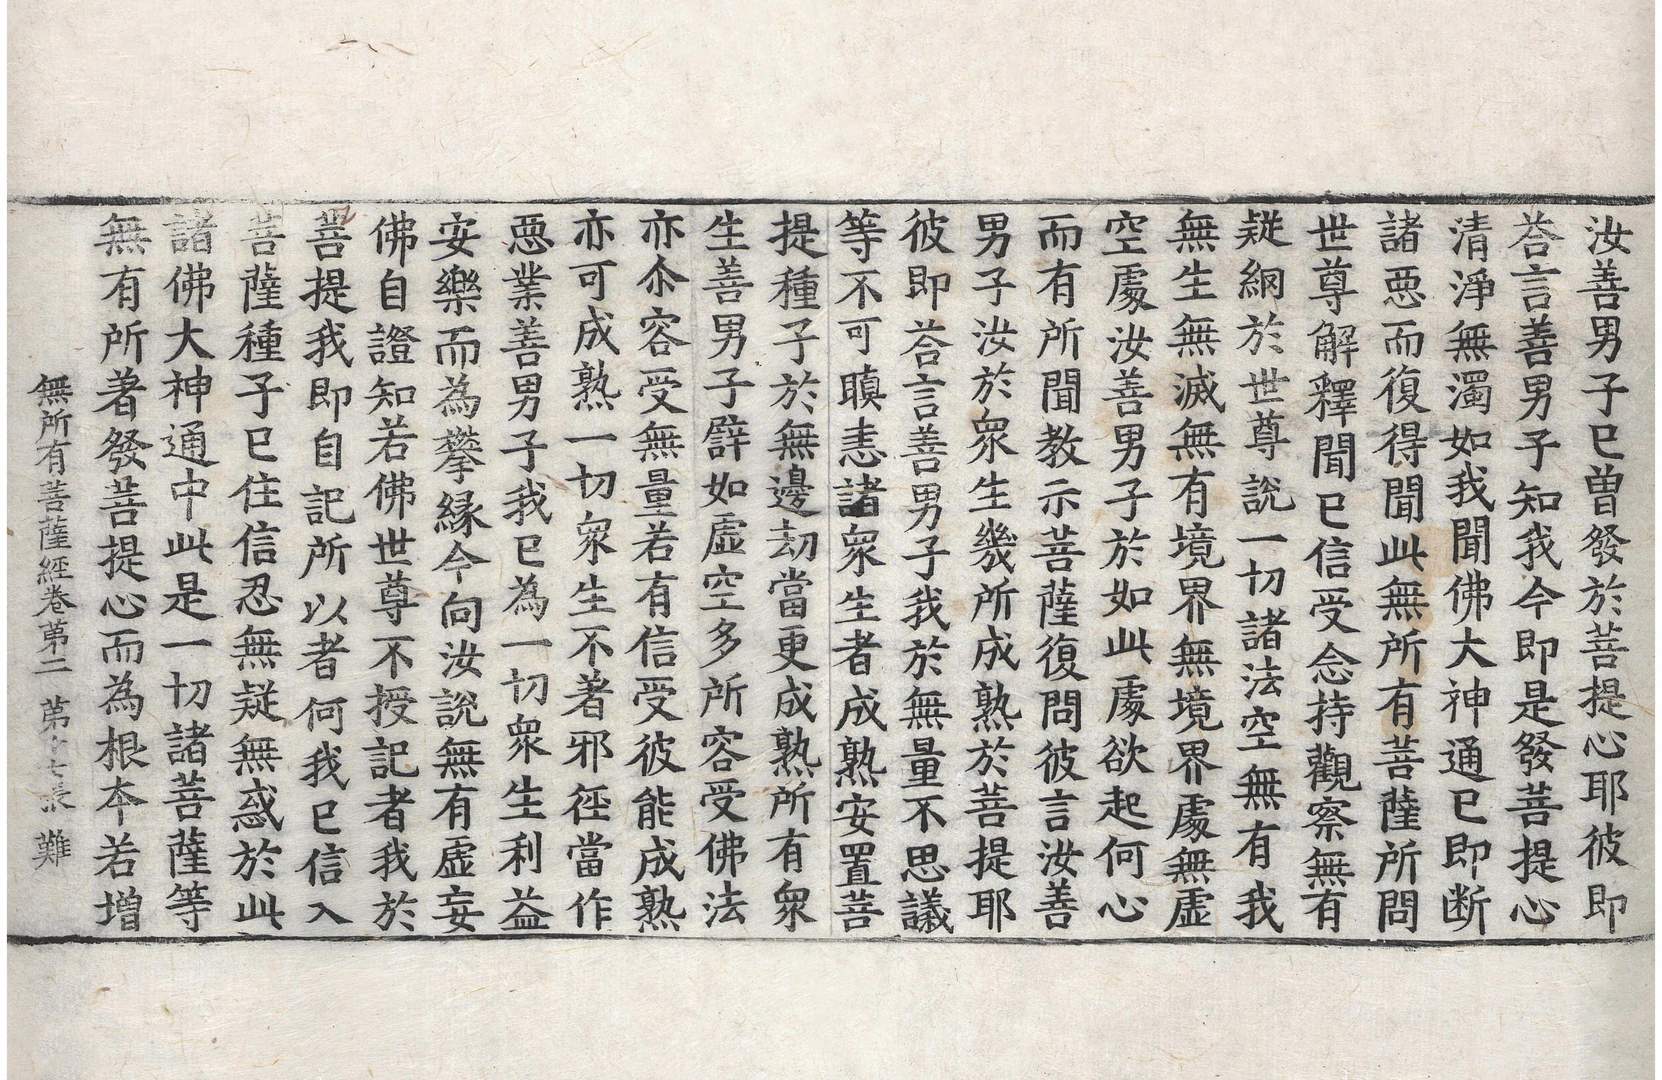 汝善男子已曾發於菩提心耶彼即
荅言善男子知我今即是發菩提心
清淨無濁如我聞佛大神通已即断
諸惡而復得聞此無所有菩薩所問
世尊解釋聞已信受念持觀察無有
疑網於世尊說一切諸法空無有我
無生無滅無有境界無境界處無虛
空處汝善男子於如此處欲起何心
而有所聞教示菩薩復問彼言汝善
男子汝於衆生幾所成熟於菩提耶
彼即荅言善男子我於無量不思議
等不可瞋恚諸衆生者成熟安置菩
提種子於無邊劫當更成熟所有衆
生善男子譬如虛空多所容受佛法
亦尒容受無量若有信受彼能成熟
亦可成熟一切衆生不著邪徑當作
惡業善男子我已為一切衆生利益
安樂而為攀緣今向汝說無有虛妄
佛自證知若佛世尊不授記者我於
菩提我即自記所以者何我已信入
菩薩種子已住信忍無疑無惑於此
諸佛大神通中此是一切諸菩薩等
無有所著發菩提心而為根本若增
無所有菩薩經卷第二 第十七張 難